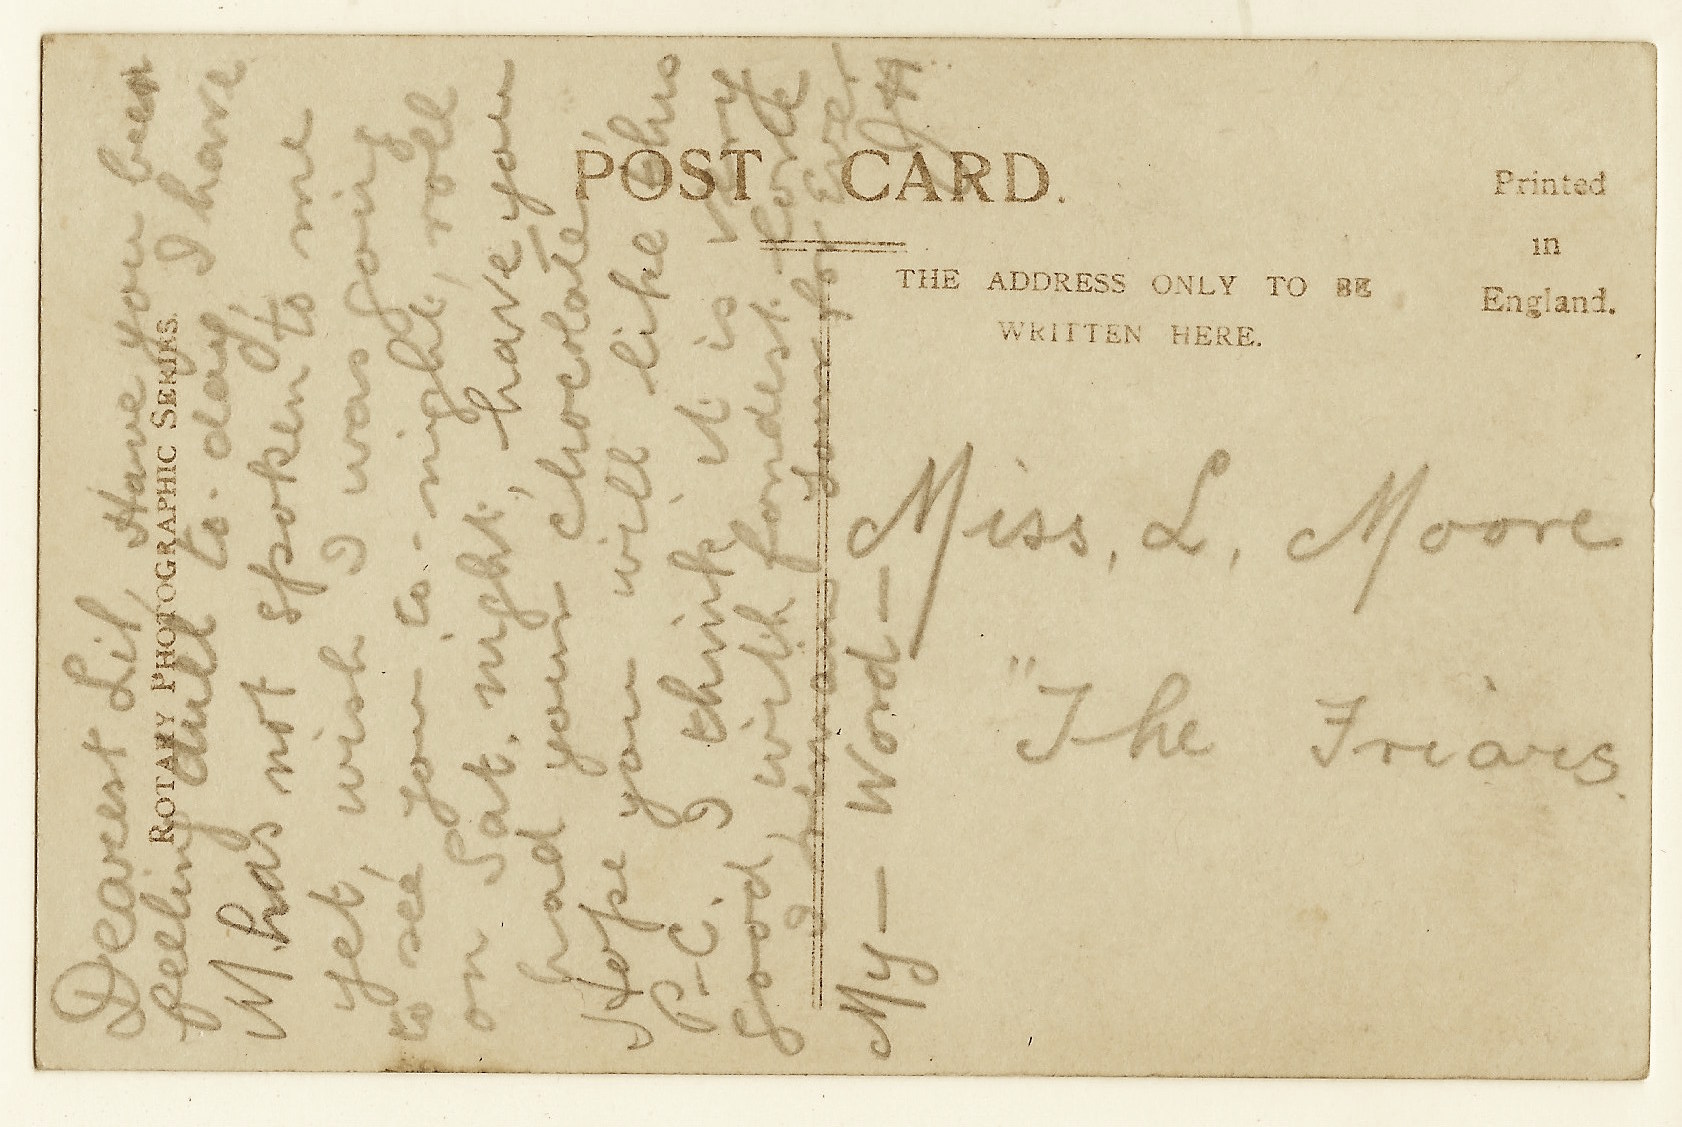 POST CARD.
Printed
in
England.
THE ADDRESS ONLY TO BE
WRITTEN HERE.
ROTARY PHOTOGRAPHIC SERIES.
Dearest Lil, Have you been
feeling dull to-day, I have
M has not spoken to me
yet, wish I was going
to see you to-night, roll
on Sat. night, have you
had your chocolate,
Hope you will like this
P-C. I think it is very
good with fondest love
I remain Yours for Ever.
My — Word —
Miss. L. Moore
"The Friars